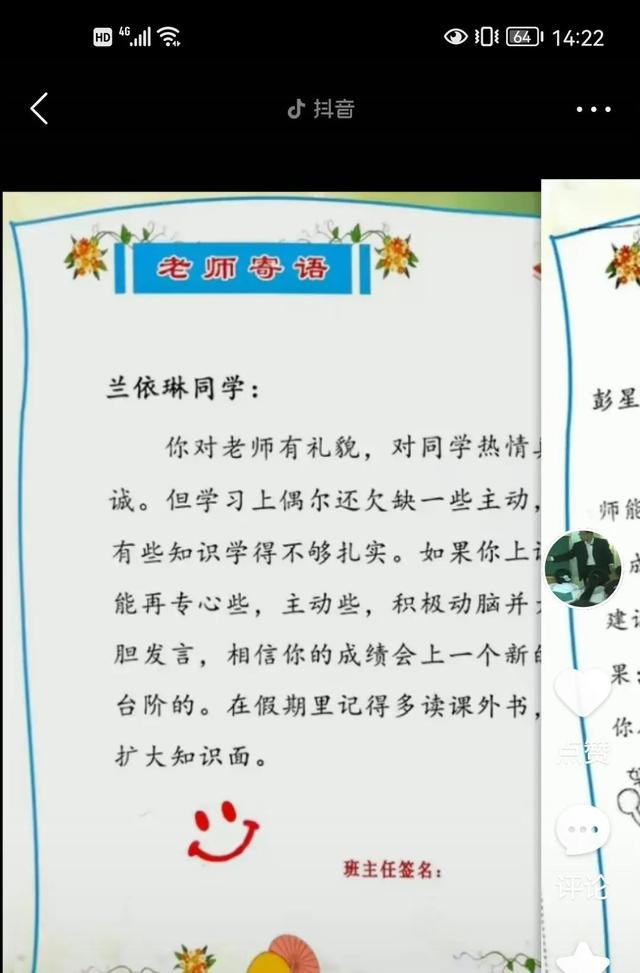 HD 4G 64 14:22
抖音
老师寄语
兰依琳同学：
你对老师有礼貌，对同学热情
诚。但学习上偶尔还欠缺一些主动，
有些知识学得不够扎实。如果你上
能再专心些，主动些，积极动脑并
胆发言，相信你的成绩会上一个新
台阶的。在假期里记得多读课外书，
扩大知识面。
班主任签名：
彭星
师能
建
果：
你
点赞
评论